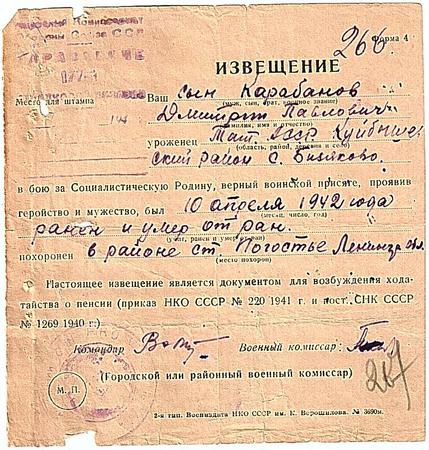 Народный Комиссариат
Обороны Союза ССР
260
Форма 4
УПРАВЛЕНИЕ
ИЗВЕЩЕНИЕ
Место для штампа
Ваш сын Карабанов
(муж, сын, брат, военное звание)
Дмитрий Павлович
(фамилия, имя и отчество)
уроженец Тат. АССР Куйбыше
(область, район, деревня и село)
ский район с. Бизяково.
в бою за Социалистическую Родину, верный воинской присяге, проявив
геройство и мужество, был 10 апреля 1942 года
(месяц, число, год)
ранен и умер от ран.
(убит, ранен и умер от ран)
похоронен в районе ст. Погостье Ленингр. обл.
(место похорон)
Настоящее извещение является документом для возбуждения хода-
тайства о пенсии (приказ НКО СССР № 220 1941 г. и пост. СНК СССР
№ 1269 1940 г.)
Командир
Военный комиссар:
(Городской или районный военный комиссар)
М. П.
267
2-я тип. Воениздата НКО СССР им. К. Ворошилова. № 3690м.